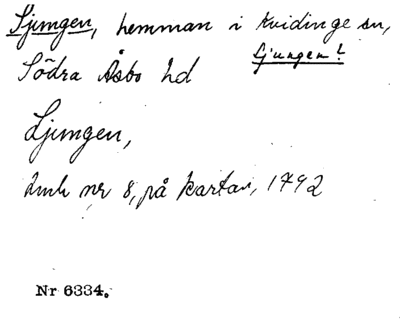 Ljungen, hemman i Kvidinge sn,
Södra Åsbo hd Ljungen!
Ljungen,
Lmk nr 8, på kartan, 1792
Nr 6334.